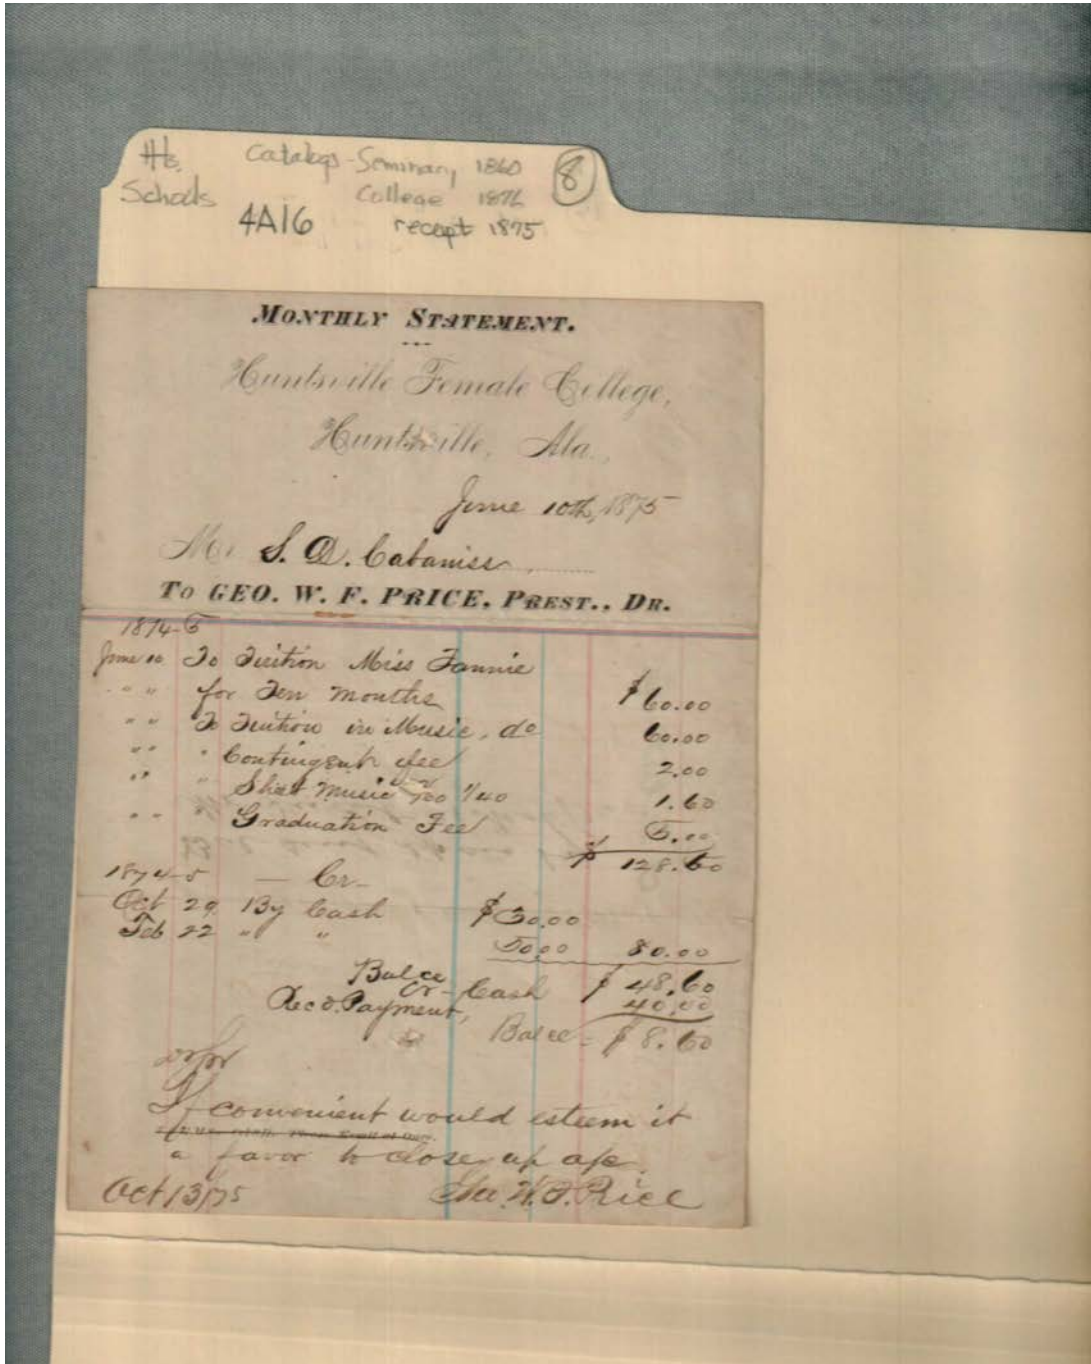 Hs. Catalogs - Seminary 1860 8
Schools College 1876
4A16 receipt 1875
MONTHLY STATEMENT.
Huntsville Female College,
Huntsville, Ala.,
June 10th, 1875
Mr S. D. Cabaniss
To GEO. W. F. PRICE, PREST., DR.
1874-5
June 10 To Tuition Miss Fannie
" " for Ten Months $60.00
" " To Tuition in Music, do 60.00
" " " Contingent fee 2.00
" " " Sheet Music 1.60
" " " Graduation Fee 5.00
$ 128.60
1874-5 — Cr —
Oct 29 By Cash $30.00
Feb 22 " " 50.00 80.00
Balce $ 48.60
Cr - Cash 40.00
Rec'd. Payment,
Balce - $ 8.60
If convenient would esteem it
a favor to close up a/c.
Oct 13/75 Geo. W. F. Price